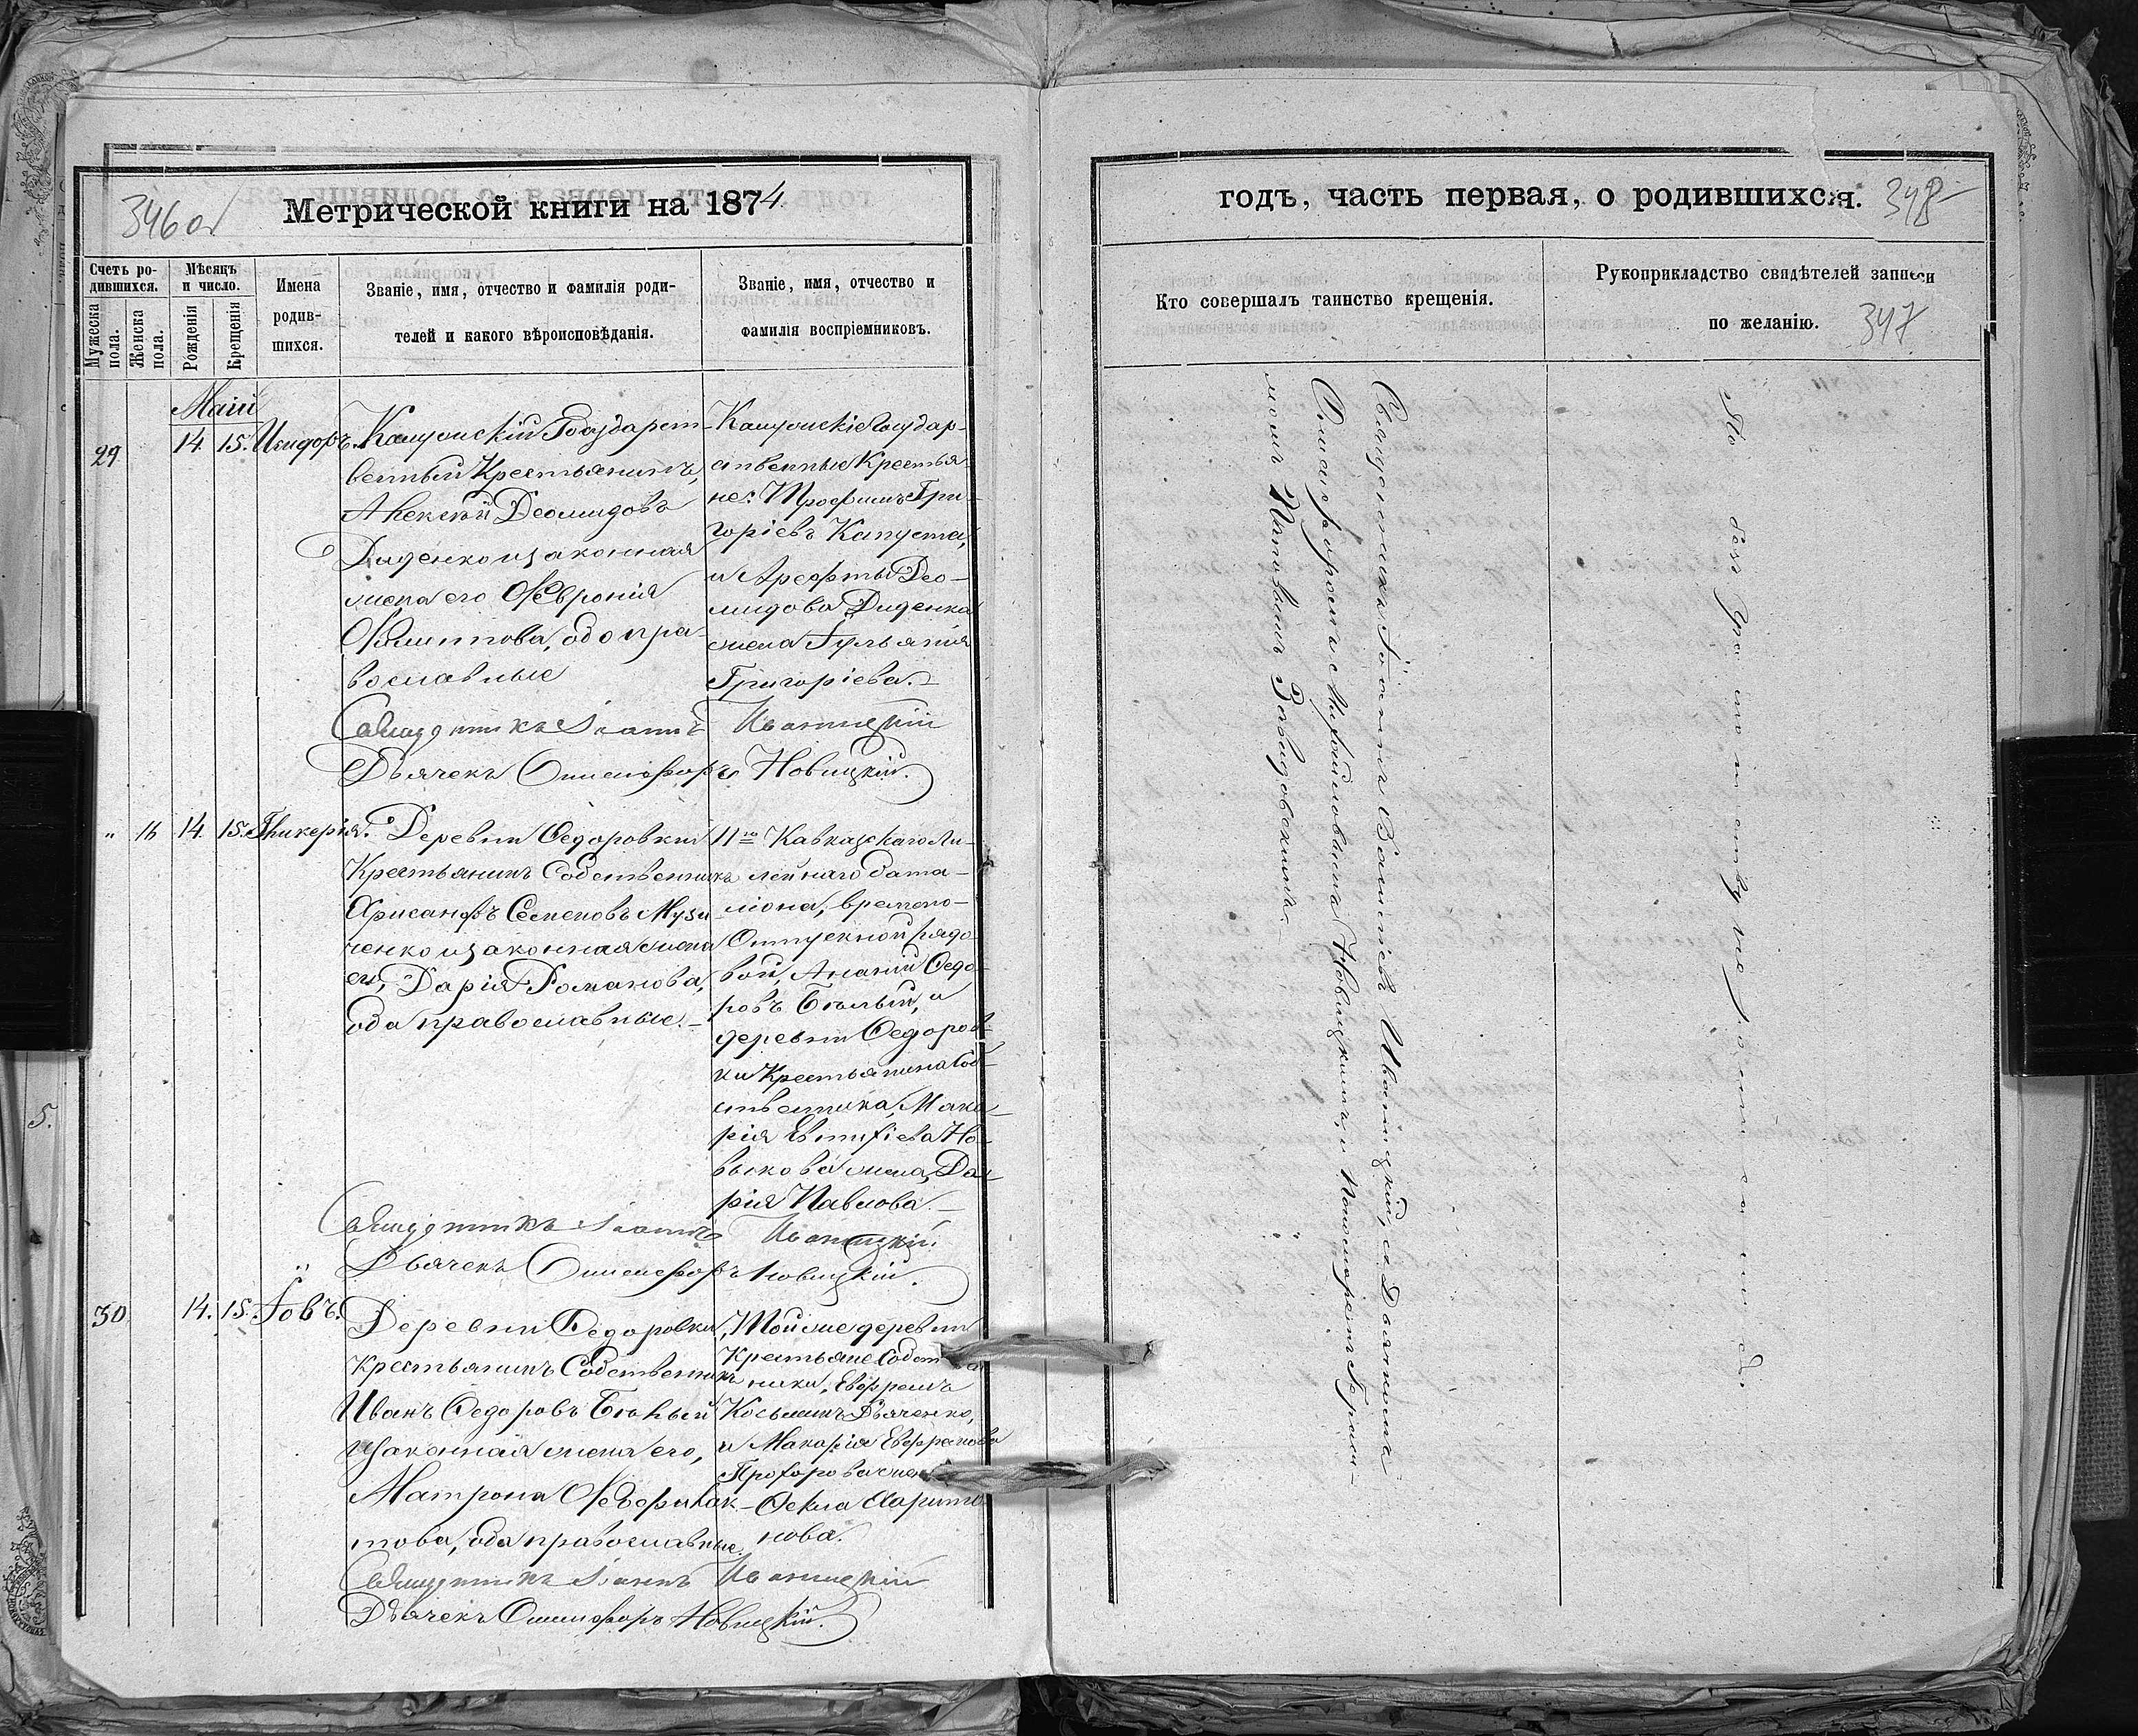 346 об
Метрической книги на 1874
Счетъ ро-
дившихся.
Мѣсяцъ
и число.
Мужеска
пола.
Женска
пола.
Рожденія
Крещенія
Имена
родив-
шихся.
Званіе, имя, отчество и фамилія роди-
телей и какого вѣроисповѣданія.
Званіе, имя, отчество и
фамилія воспріемниковъ.
Маій
29
14
15.
Исидоръ.
Государст-
венный Крестьянинъ,
Алексѣй Деомидовъ
Диденко и законная
жена его Февронія
Филипова, оба пра-
вославные
Государ-
ственные Крестья-
не: Трофимъ Гри-
горіевъ Капуста,
и Арефты Део-
мидова Диденка
жена Іуліанія
Григоріева.
Священникъ Іоаннъ Иваницкій
Дьячекъ Онисифоръ Новицкій.
"
16
14.
15.
Гликерія.
Деревни Федоровки
Крестьянинъ Собственникъ
Хрисанфъ Семеновъ Музы
ченко и законная жена
его, Дарія Романова,
оба православные.
11го Кавказскаго Ли-
нейнаго бата-
ліона, времено-
Отпускной рядо-
вой, Ананій Федо-
ровъ Бѣлый, и
деревни Федоров-
ки Крестьянина Соб-
ственника, Мака-
рія Евтифіева Но-
викова жена, Да-
рія Павлова.
Священникъ Іоаннъ Иваницкій
Дьячекъ Онисифоръ Новицкій.
30
14.
15.
Іовъ.
Деревни Федоровки,
крестьянинъ Собственникъ
Иванъ Федоровъ Бѣлый
и законная жена его,
Матрона
това, оба православные.
Той же деревни
Крестьяне Собст
ники, Ефремъ
Косьминъ Дьяченко,
и Макарія
Прохорова жен
Фекла Харито
нова.
Священникъ Іоаннъ Иваницкій
Дьячекъ Онисифоръ Новицкій.
годъ, часть первая, о родившихся.
348
Кто совершалъ таинство крещенія.
Рукоприкладство свидѣтелей записи
по желанію.
347
Священникъ Іоаннъ Василіевъ Иваницкій, съ Дьячкомъ
Онисифоромъ Новицкимъ и Пономаремъ Гераси-
момъ Завидовскимъ.
По безграмотству не росписались.
5.